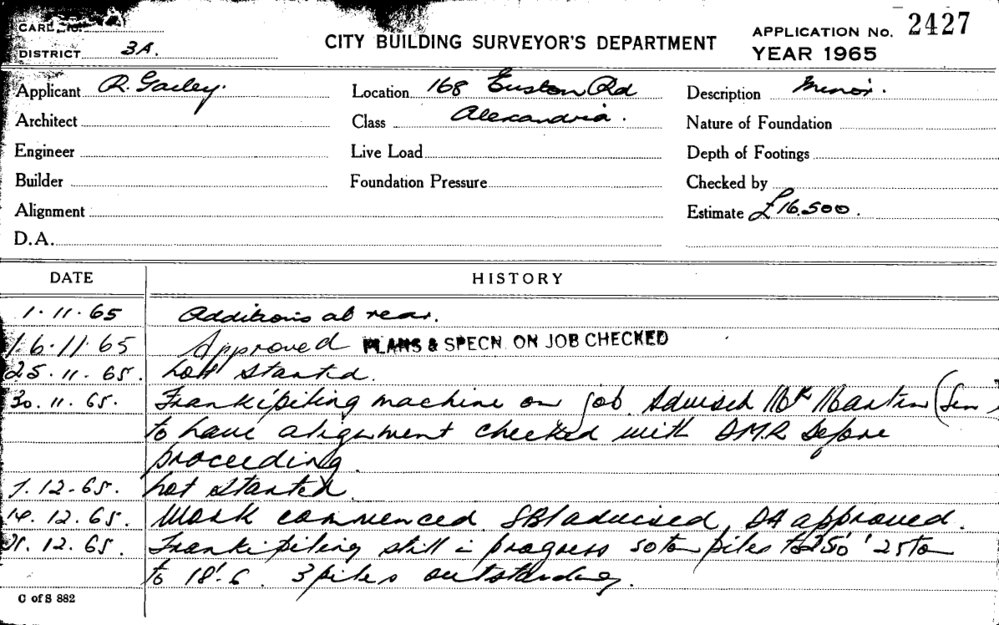 CARD No.
DISTRICT 3A.
CITY BUILDING SURVEYOR'S DEPARTMENT
APPLICATION No. 2427
YEAR 1965
Applicant R. Gailey. Location 168 Euston Rd Description Minor.
Architect Class Alexandria. Nature of Foundation
Engineer Live Load Depth of Footings
Builder Foundation Pressure Checked by
Alignment Estimate £16,500.
D.A.
DATE HISTORY
1.11.65 Additions at rear.
16.11.65 Approved PLANS & SPECN. ON JOB CHECKED
25.11.65. not started.
30.11.65. Frankipiling machine on job. Advised Mr Martin
to have alignment checked with DMR before
proceeding.
7.12.65. not started.
14.12.65. Work commenced. SBI advised, DA approved.
21.12.65. Frankipiling still in progress 50 ton piles to 25 ton
to 18'.6. 3 piles outstanding.
C of S 882